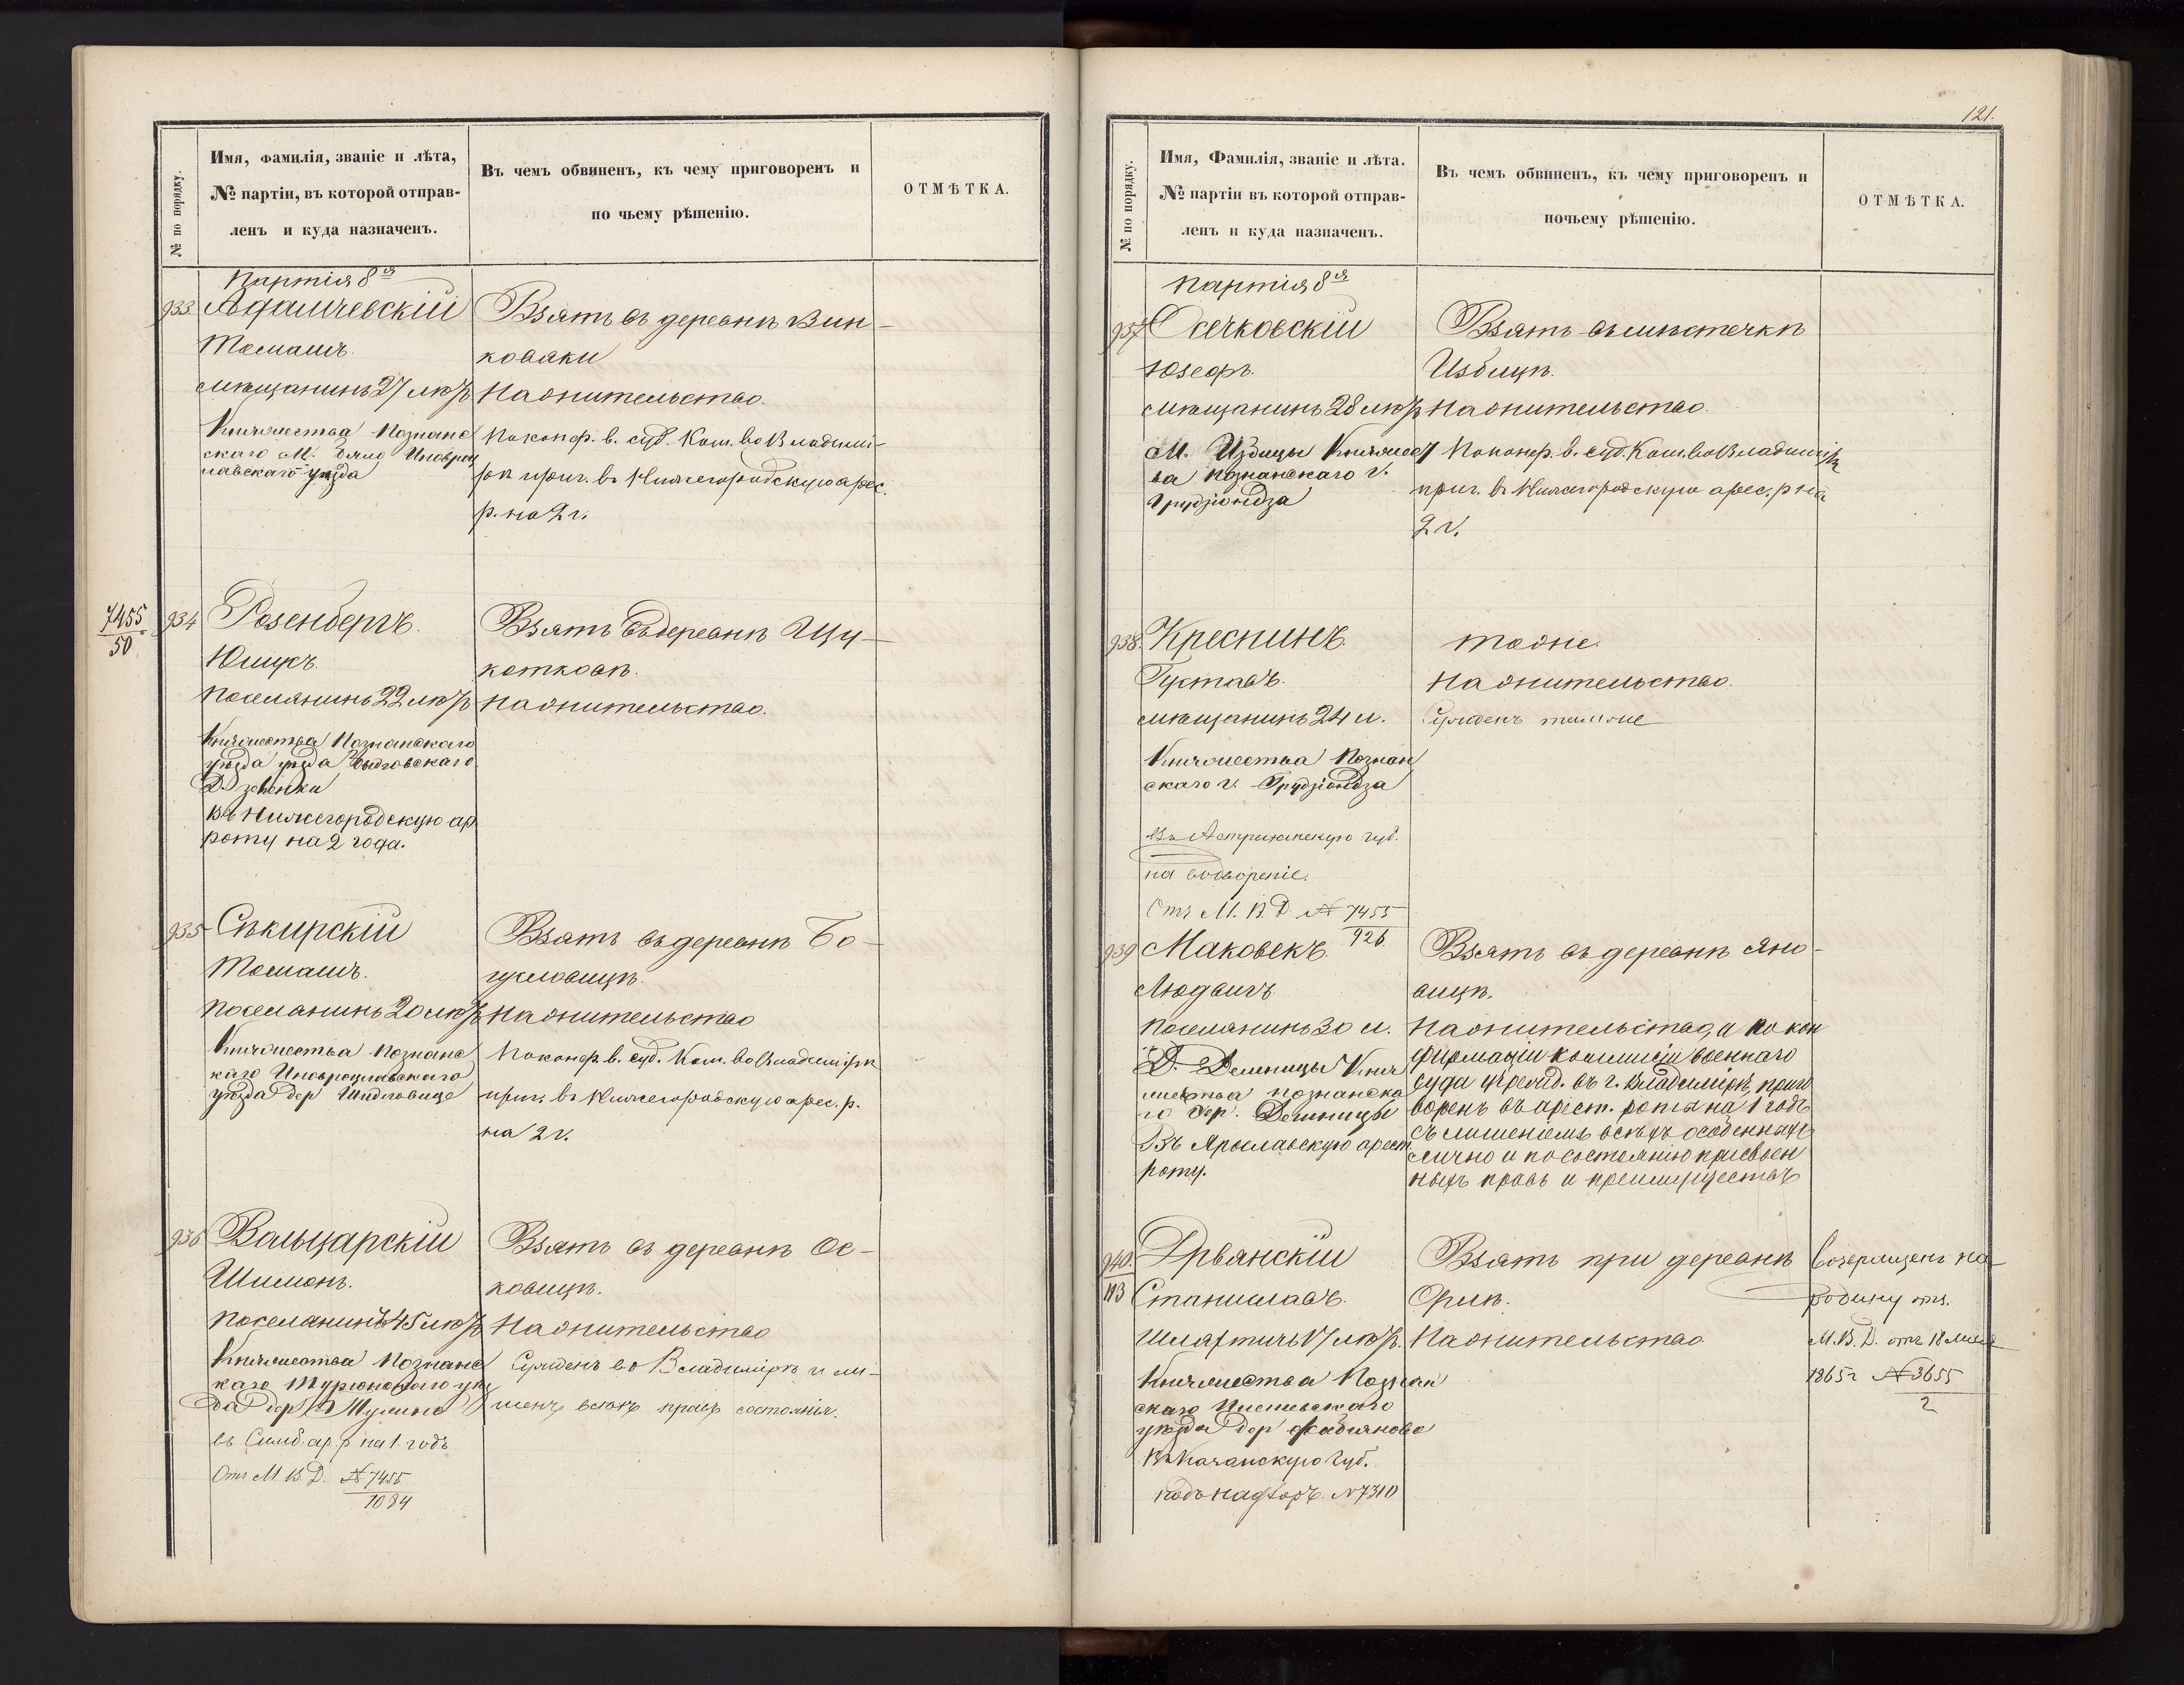 № по порядку.
Имя, фамилія, званіе и лѣта,
№ партіи, въ которой отправ-
ленъ и куда назначенъ.
Въ чемъ обвиненъ, къ чему приговоренъ и
по чьему рѣшенію.
ОТМѢТКА.
Партія 8я
933. Адамчевскій
Томашъ.
мѣщанинъ 27 лѣтъ
Княжества Познанс
скаго М. Иновроц
лавскаго уѣзда
Взятъ въ деревнѣ Вин-
коваки
На жительство.
По конф. в. суд. Ком. во Владимі-
рѣ приг. въ Нижегородскую арес.
р. на 2 г.
7455
50
934 Розенбергъ.
Юлиусъ.
Поселянинъ 22 лѣтъ
Княжества Познанскаго
уѣзда уѣзда
Д.
Въ Нижегородскую ар
роту на 2 года.
Взятъ въ деревнѣ Щу-
котковѣ.
На жительство.
935 Сѣкирскій
Томашъ.
Поселянинъ 20 лѣтъ
Княжества Познанс
каго Иновроцлавскаго
уѣзда дер Шидловице
Взятъ въ деревнѣ Бо-
гусловицѣ.
На жительство
По конф. в. суд. Ком. во Владимірѣ
приг. въ Нижегородскую арес. р.
на 2 г.
936 Вольцарскій
Шимонъ.
Поселянинъ 45 лѣтъ
Княжества Познанс
каго уѣз
да дер
въ Симб. ар р на 1 годъ
Отъ М. В. Д. № 7455
1084
Взятъ въ деревнѣ Ос-
ковицѣ.
На жительство
Сужденъ во Владимірѣ и ли-
шенъ всѣхъ правъ состоянія.
121.
№ по порядку.
Имя, Фамилія, званіе и лѣта.
№ партіи въ которой отправ-
ленъ и куда назначенъ.
Въ чемъ обвиненъ, къ чему приговоренъ и
почьему рѣшенію.
ОТМѢТКА.
Партія 8я
937 Осечковскій
Юзефъ.
мѣщанинъ 28 лѣтъ
М. Избицы Княжест
ва Познанскаго г.
Грудзіондза
Взятъ въ мѣстечкѣ
Избицѣ.
На жительство.
По конф. в. суд. Ком. во Владимірѣ
приг. въ Нижегородскую арес. р на
2 г.
938. Креспинъ.
Густавъ.
мѣщанинъ 24 л.
Княжества Познан
скаго г. Грудзіондза
Въ Астраханскую губ.
на водвореніе.
Отъ М. В. Д. № 7455
926.
тоже.
На жительство.
Сужденъ тамже
939 Маковекъ.
Людвигъ
Поселянинъ 30 л.
Д. Демницы Княж
жества Познанска
го дер. Демницы
Въ Ярославскую арест
роту.
Взятъ въ деревнѣ Яно-
вицѣ.
На жительство, и по кон
фирмаціи коммисіи военнаго
суда учрежд. въ г. Владимірѣ, приго
воренъ въ арест. роты на 1 годъ
съ лишеніемъ всѣхъ особенныхъ
лично и по состоянію присвоен
ныхъ правъ и преимуществъ
940.
113
Дрванскій
Станиславъ.
Шляхтичъ 17 лѣтъ.
Княжества Познан
скаго Плешевскаго
уѣзда дер Фабіяново
Въ Казанскую губ.
подъ надзоръ. № 7310
Взятъ при деревнѣ
Орлѣ.
На жительство
Возвращенъ на
родину отн.
М. В. Д. отъ 18
1865 г № 3655
2